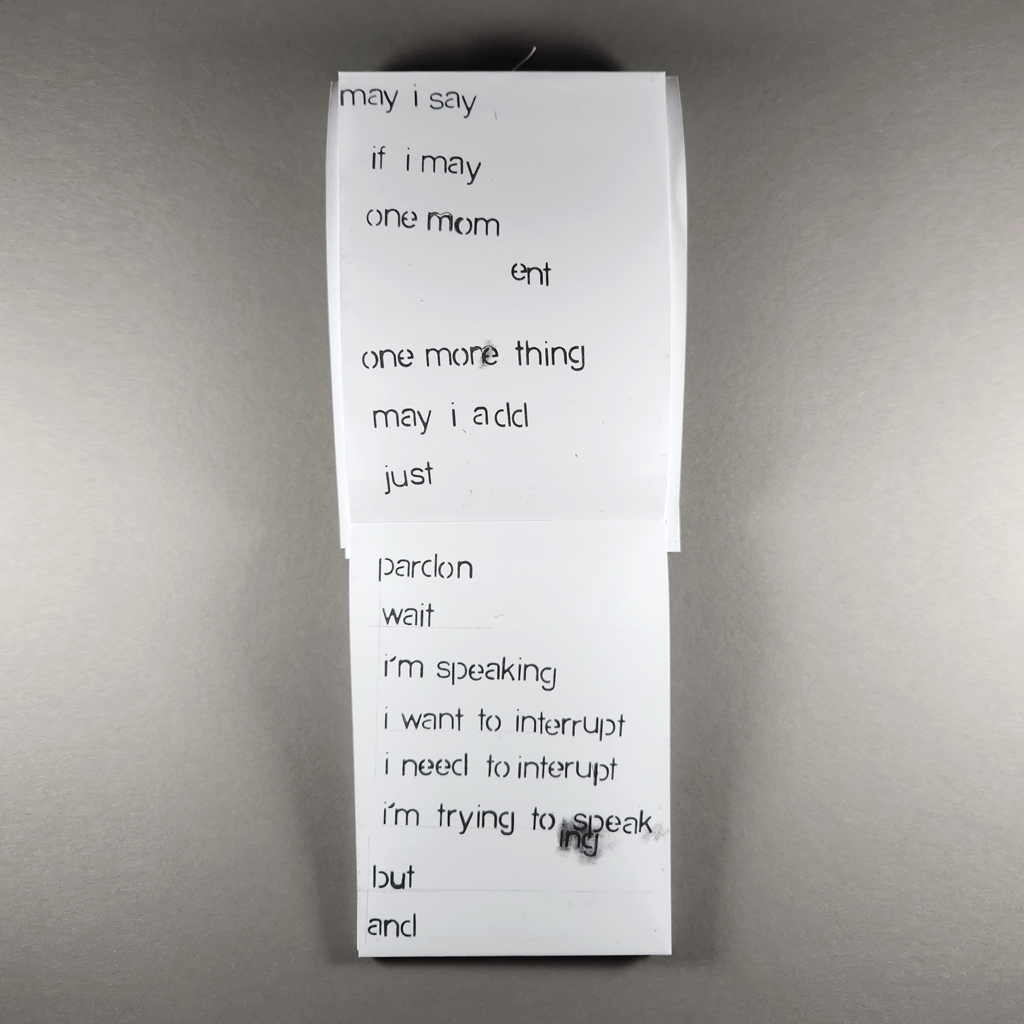 may i say
if i may
one mom
ent
one more thing
may i add
just
pardon
wait
i'm speaking
i want to interrupt
i need to interupt
i'm trying to speak
ing
but
and